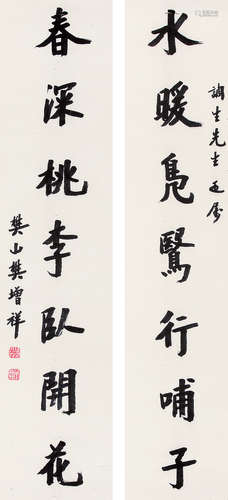 水暖鳧鷖行哺子
生先生
春深桃李臥開花
樊山樊增祥